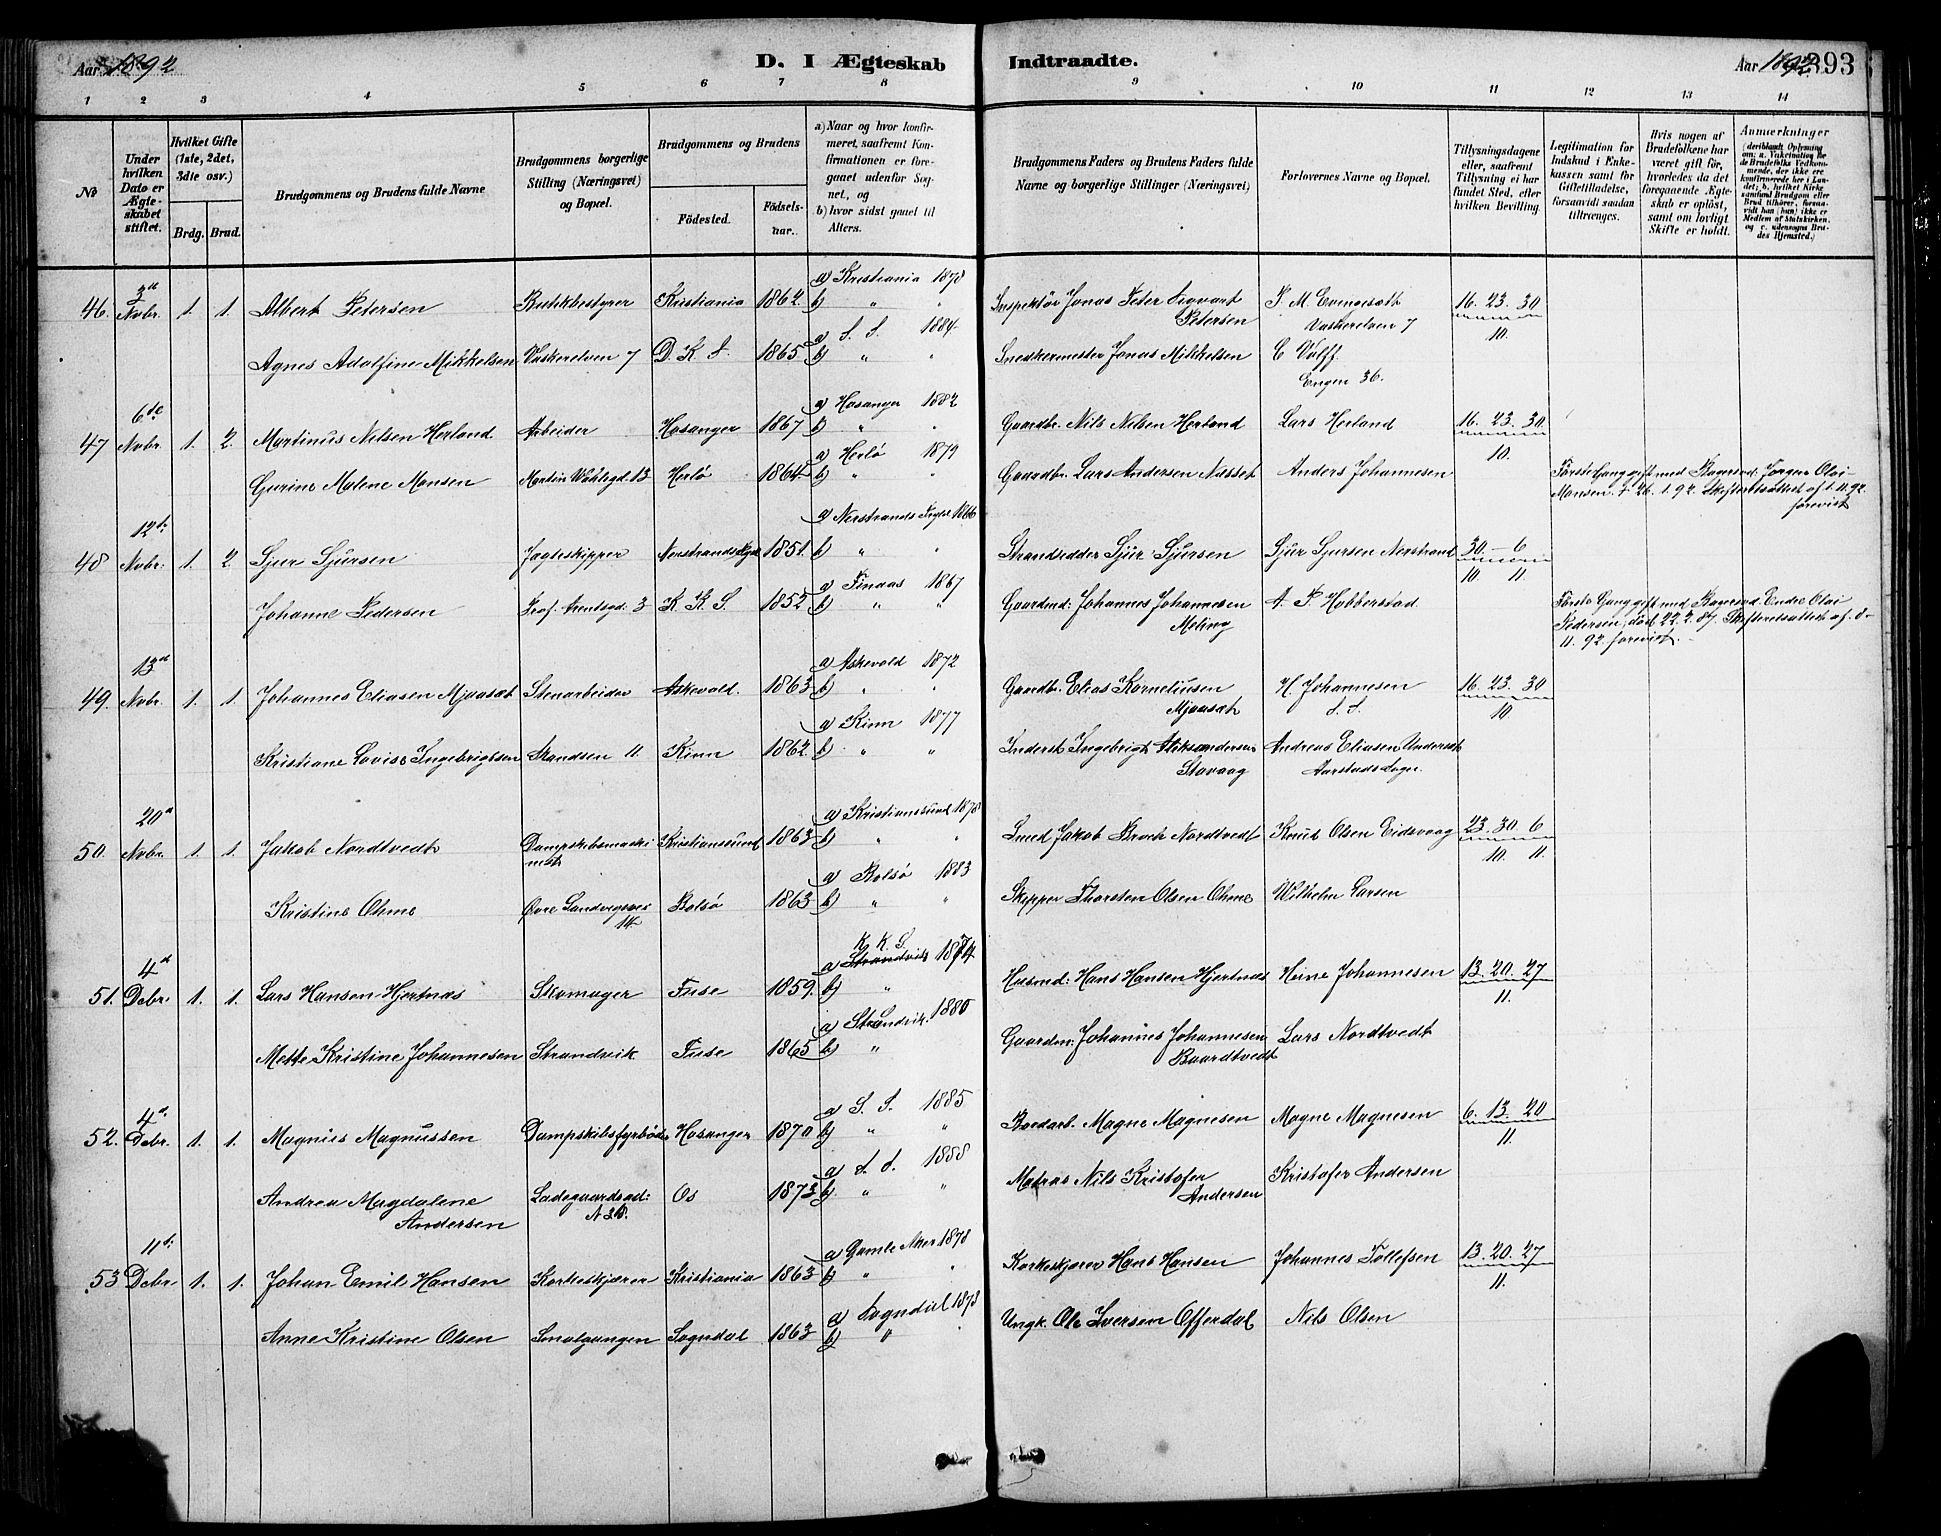 Aar 1892
D. I Ægteskab Indtraadte.
Aar 1892. 393
1 2 3 4 5 6 7 8 9 10 11 12 13 14
No
Under hvilken Dato er Ægteskabet stiftet.
Hvilket Gifte (1ste, 2det, 3die osv.)
Brdg. Brud.
Brudgommens og Brudens fulde Navne
Brudgommens borgerlige Stilling (Næringsvei) og Bopæl.
Brudgommens og Brudens
Fødested.
Fødselsaar.
a) Naar og hvor konfirmeret, saafremt Konfirmationen er foregaaet udenfor Sognet, og
b) hvor sidst gaaet til Alters.
Brudgommens Faders og Brudens Faders fulde Navne og borgerlige Stillinger (Næringsvei)
Forlovernes Navne og Bopæl.
Tillysningsdagene eller, saafremt Tillysning ei har fundet Sted, efter hvilken Bevilling.
Legitimation for Indskud i Enkekassen samt for Giftetilladelse, forsaavidt saadan tiltrænges.
Hvis nogen af Brudefolkene har været gift før, hvorledes da det foregaaende Ægteskab er opløst, samt om lovligt Skifte er holdt.
Anmærkninger (deriblandt Oplysning om: a. Vakcination for de Brudefolks Vedkommende, der ikke ere konfirmerede her i Landet; b. hvilket Kirkesamfund Brudgom eller Brud tilhører, forsaavidt han (hun) ikke er Medlem af Statskirken, og c. udensogns Brudes Hjemsted.)
46. 3d Novbr. 1. 1. Albert Petersen Butikbestyrer Kristiania 1862 a) Kristiania 1878 b) " " Inspektør Jonas Peter Sigvart Petersen P. M. Evingesætt Vaskerelven 7 16. 23. 30 10.
Agnes Adolfine Mikkelsen Vaskerelven 7 D. K S. 1865 a) S. S. 1884 b) " " Snedkermester Jonas Mikkelsen C Wolff Engen 36.
47 6de Novbr. 1. 2. Martinus Nilsen Herland Arbeider Hosanger 1867 a) Hosanger 1882 b) " " Gaardbr. Nils Nilsen Herland Lars Herland 16. 23. 30. 10.
Gurine Malene Monsen Martin Wahlsgd. 13 Herlø 1864 a) Herlø 1879 b) " " Gaardbr. Lars Andersen Nesset Anders Johannesen Første Gang gift med Bagersvd. Jørgen Olai Monsen. † 26. 1. 92. Skifteretsattest af 1. 11. 92. forevist
48 12te Novbr. 1. 2 Sjur Sjursen Jagteskipper Nerstrands Prgld. 1851. a) Nerstrands Prgld. 1866 b) " " Strandsidder Sjur Sjursen Sjur Sjursen Nerstrand 30 – 6 10. 11.
Johanne Pedersen Prof. Arentsgd. 3 K K. S. 1852 a) Finaas 1867 b) " " Gaardmd: Johannes Johannesen Meling A. P Hobberstad Første Gang gift med Bagersvd. Endre Olai Pedersen, død 22. 2. 87. Skifteretsattest af 8. 11. 92. forevist.
49. 13d Novbr. 1. 1. Johannes Eliasen Mjaasæt Stenarbeider Askevold. 1863 a) Askevold 1872 b) " " Gaardbr. Elias Korneliusen Mjaasæt H. Johannesen S. S. 16. 23. 30 10.
Kristiane Lovise Ingebrigtsen Skandsen 11 Kinn 1862 a) Kinn 1877 b) " " Inderst Ingebrigt Aleksandersen Stavaag Andreas Eliasen Aarstads Sogn.
50. 20d Novbr. 1. 1. Jakob Nordtvedt Dampskibsmaskinist Kristianssund 1863 a) Kristianssund 1878 b) " " Smed Jakob Broch Nordtvedt Knud Olsen Eidsvaag 23. 30. 6 10. 11.
Kristine Ohme Øvre Sandvigsvei 14 Bolsø 1863 a) Bolsø 1883 b) " " Skipper Thorsten Olsen Ohme Wilhelm Larsen
51. 4d Debr. 1. 1. Lars Hansen Hjertnæs Skomager Fuse 1859. a) K. K. S. Strandvik 1874 b) " Husmd: Hans Hansen Hjertnæs Heine Johannesen 13. 20. 27 11.
Mette Kristine Johannesen Strandvik Fuse 1865 a) Strandvik. 1880 b) " Gaardm: Johannes Johannesen Baardtvedt Lars Nordtvedt
52. 4d. Debr. 1. 1. Magnus Magnussen Dampskibsfyrbøder Hosanger 1870 a) S. S. 1885 b) " " Bordarb. Magne Magnesen Magne Magnesen 6. 13. 20 11.
Andrea Magdalene Andersen Ladegaardsgd: N 3B. Os 1873 a) S. S. 1888 b) " " Matros Nils Kristofer Andersen Kristofer Andersen
53 11te Debr 1. 1. Johan Emil Hansen Korkeskjærer Kristiania 1863 a) Gamle Aker 1878 b) " " Korkeskjærer Hans Hansen Johannes Tollefsen 13. 20. 27 11.
Anne Kristine Olsen Smalgangen Sogndal 1863 a) Sogndal 1878 b) " " Ungk. Ole Iversen Offerdal Nils Olsen